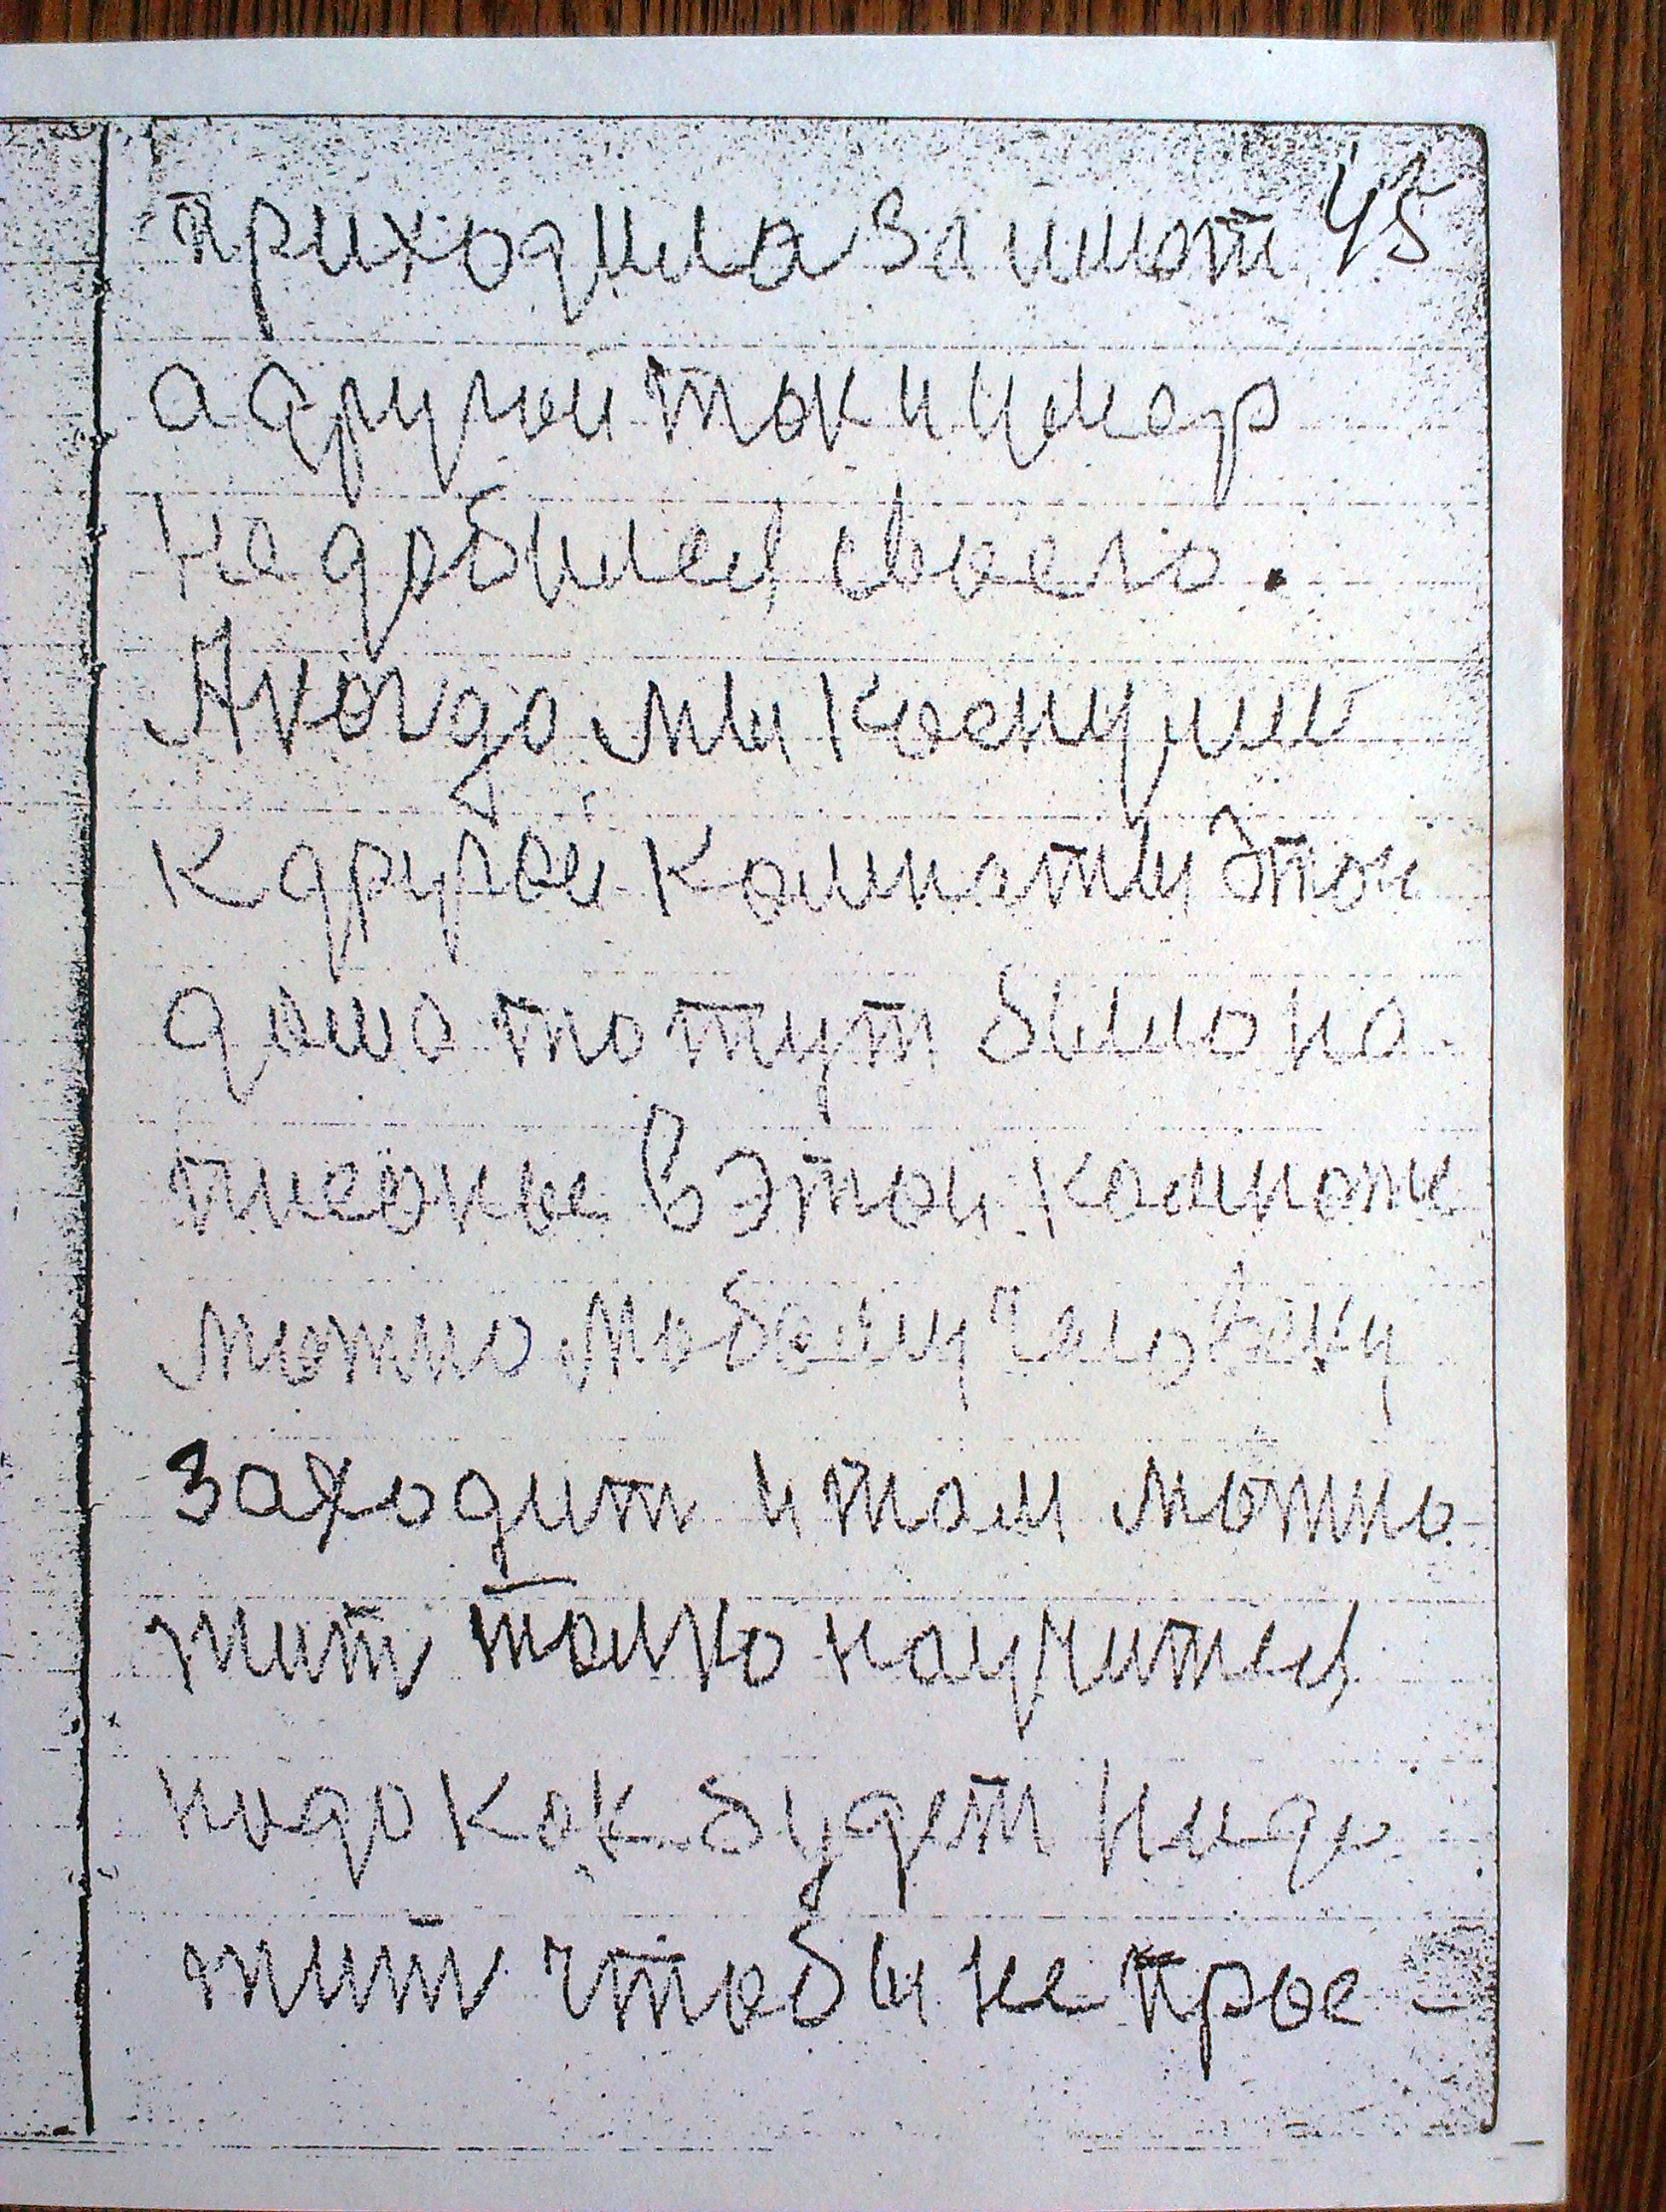 приходила за ишот 45
а другой так и умар
не добился своего.
А когда мы коснулис
к другой комнаты этои
дома то тут было на
писоное в этой комноте
можно любому человеку
заходит и там можно
жит толко научится
нидо как будет нидо
жит чтобы не прое-